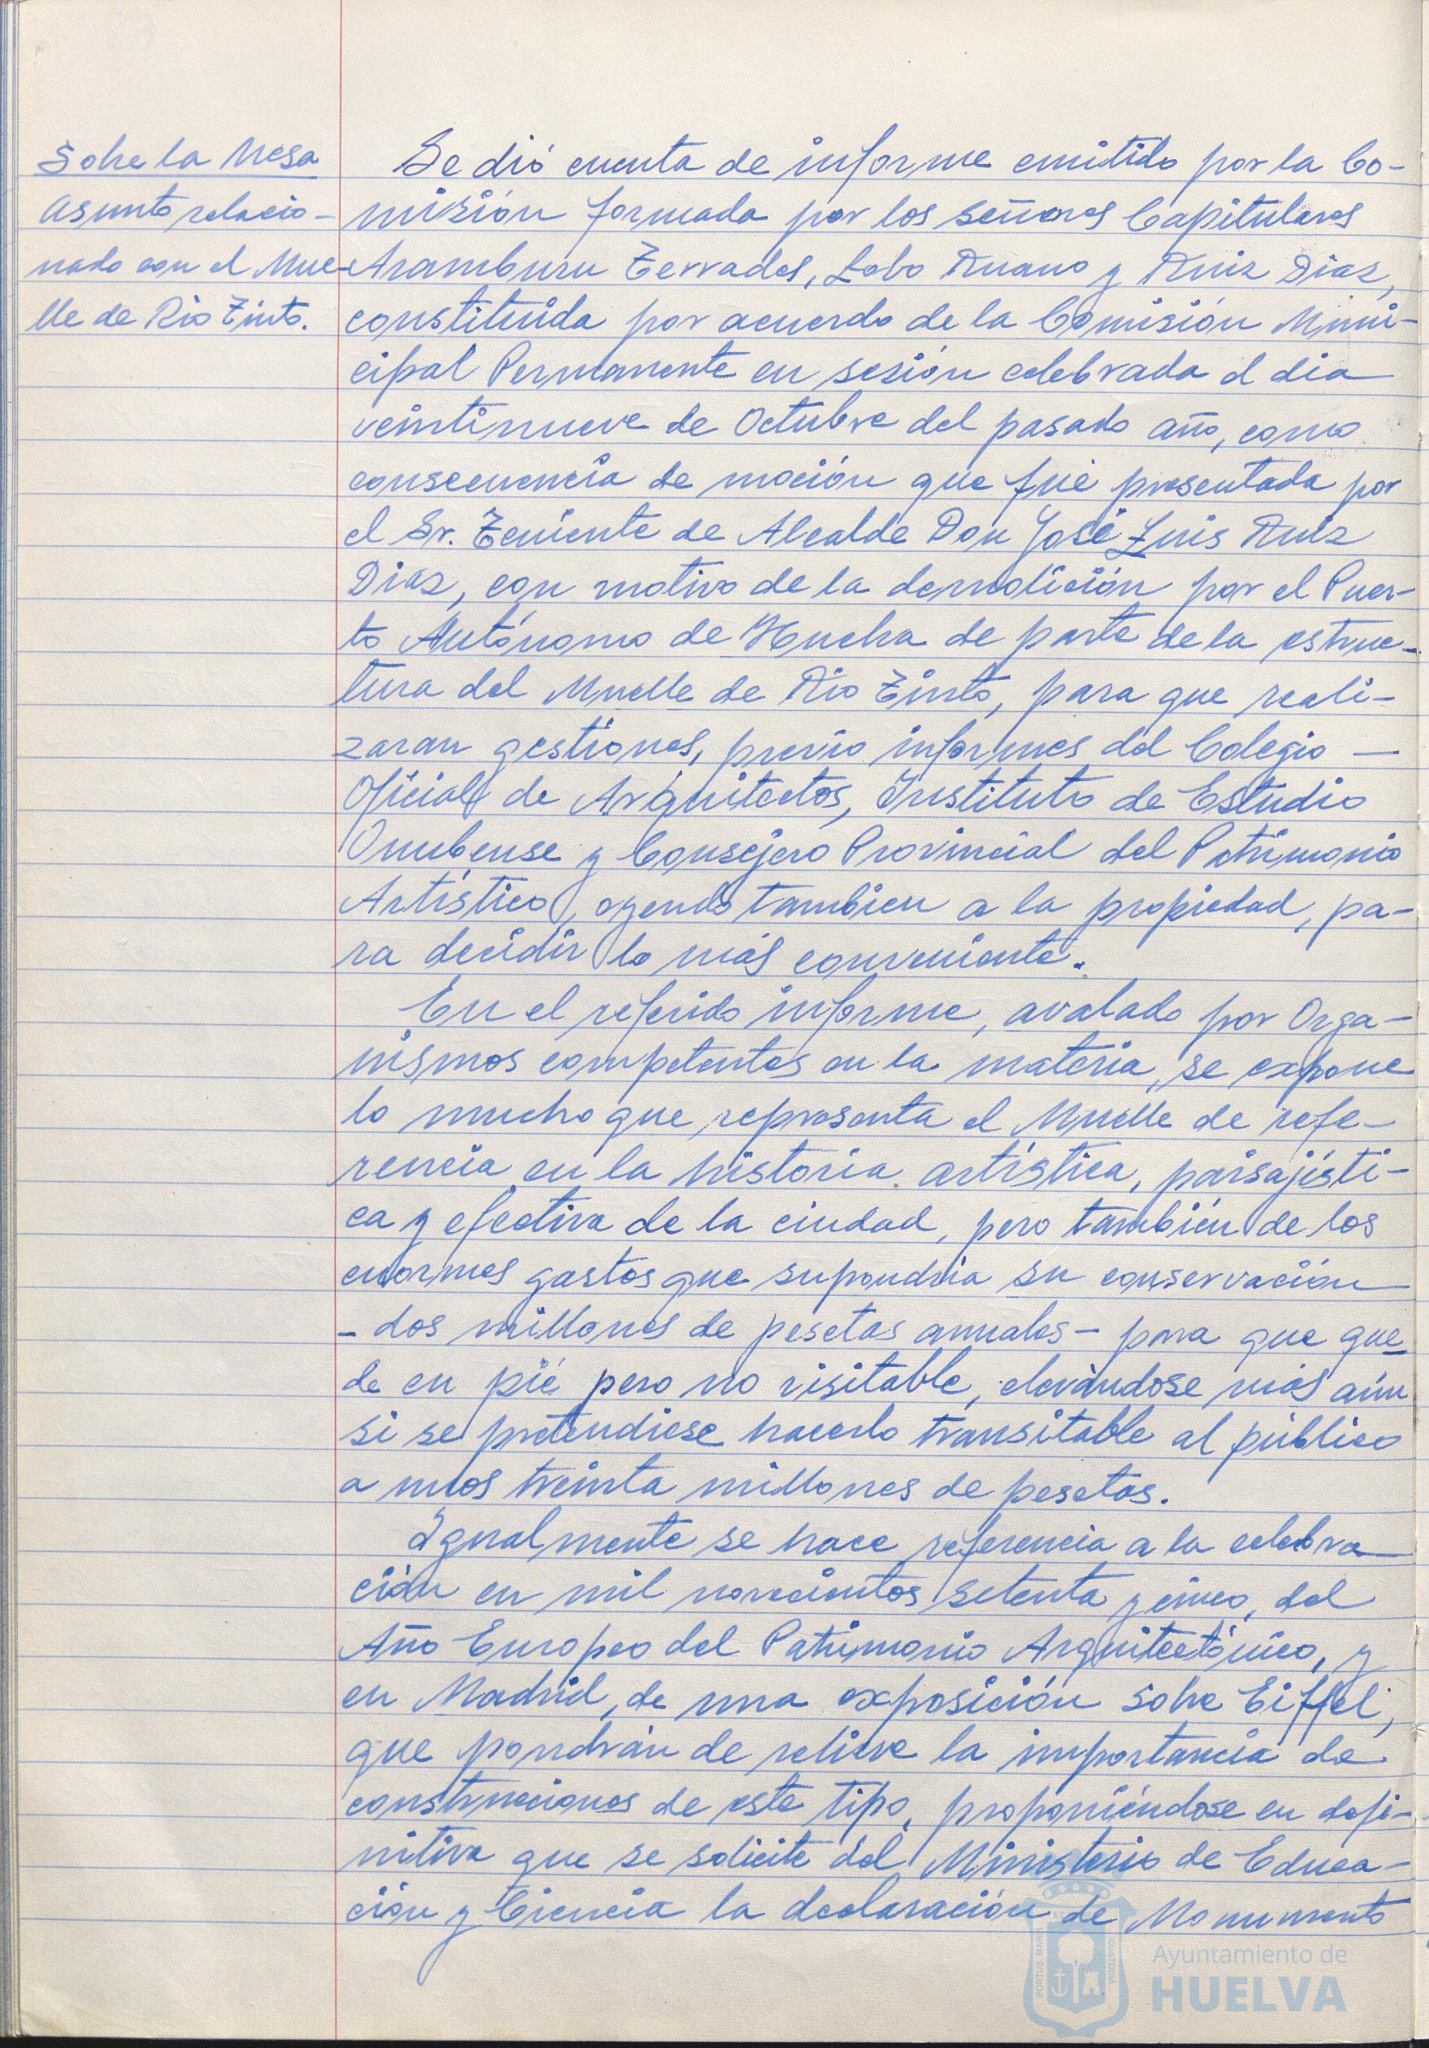 Sobre la Mesa
asunto relacio-
nado con el Mue-
lle de Rio Tinto.
Se dió cuenta de informe emitido por la Co-
misión formada por los señores Capitulares
Aramburu Terrades, Lobo Ruano y Ruiz Diaz,
constituida por acuerdo de la Comisión Muni-
cipal Permanente en sesión celebrada el dia
veintinueve de Octubre del pasado año, como
consecuencia de moción que fué presentada por
el Sr. Teniente de Alcalde Don José Luis Ruiz
Diaz, con motivo de la demolición por el Puer-
to Autónomo de Huelva de parte de la estruc-
tura del Muelle de Rio Tinto, para que reali-
zaran gestiones, previo informes del Colegio -
Oficial de Arquitectos, Instituto de Estudio
Onubense y Consejero Provincial del Patrimonio
Artístico, oyendo tambien a la propiedad, pa-
ra decidir lo más conveniente.
En el referido informe, avalado por Orga-
nismos competentes en la materia, se expone
lo mucho que representa el Muelle de refe-
rencia en la historia artística, paisajísti-
ca y efectiva de la ciudad, pero también de los
enormes gastos que supondria su conservación
- dos millones de pesetas anuales - para que que
de en pié pero no visitable, elevándose más aún
si se pretendiese hacerlo transitable al público
a unos treinta millones de pesetas.
Igualmente se hace referencia a la celebra
ción en mil novecientos setenta y cinco, del
Año Europeo del Patrimonio Arquitectónico, y
en Madrid, de una exposición sobre Eiffel,
que pondrán de relieve la importancia de
construcciones de este tipo, proponiéndose en defi-
nitiva que se solicite del Ministerio de Educa-
ción y Ciencia la declaración de Monumento
PORTUS MARIS ET TERRAE CUSTODIA
Ayuntamiento de
HUELVA